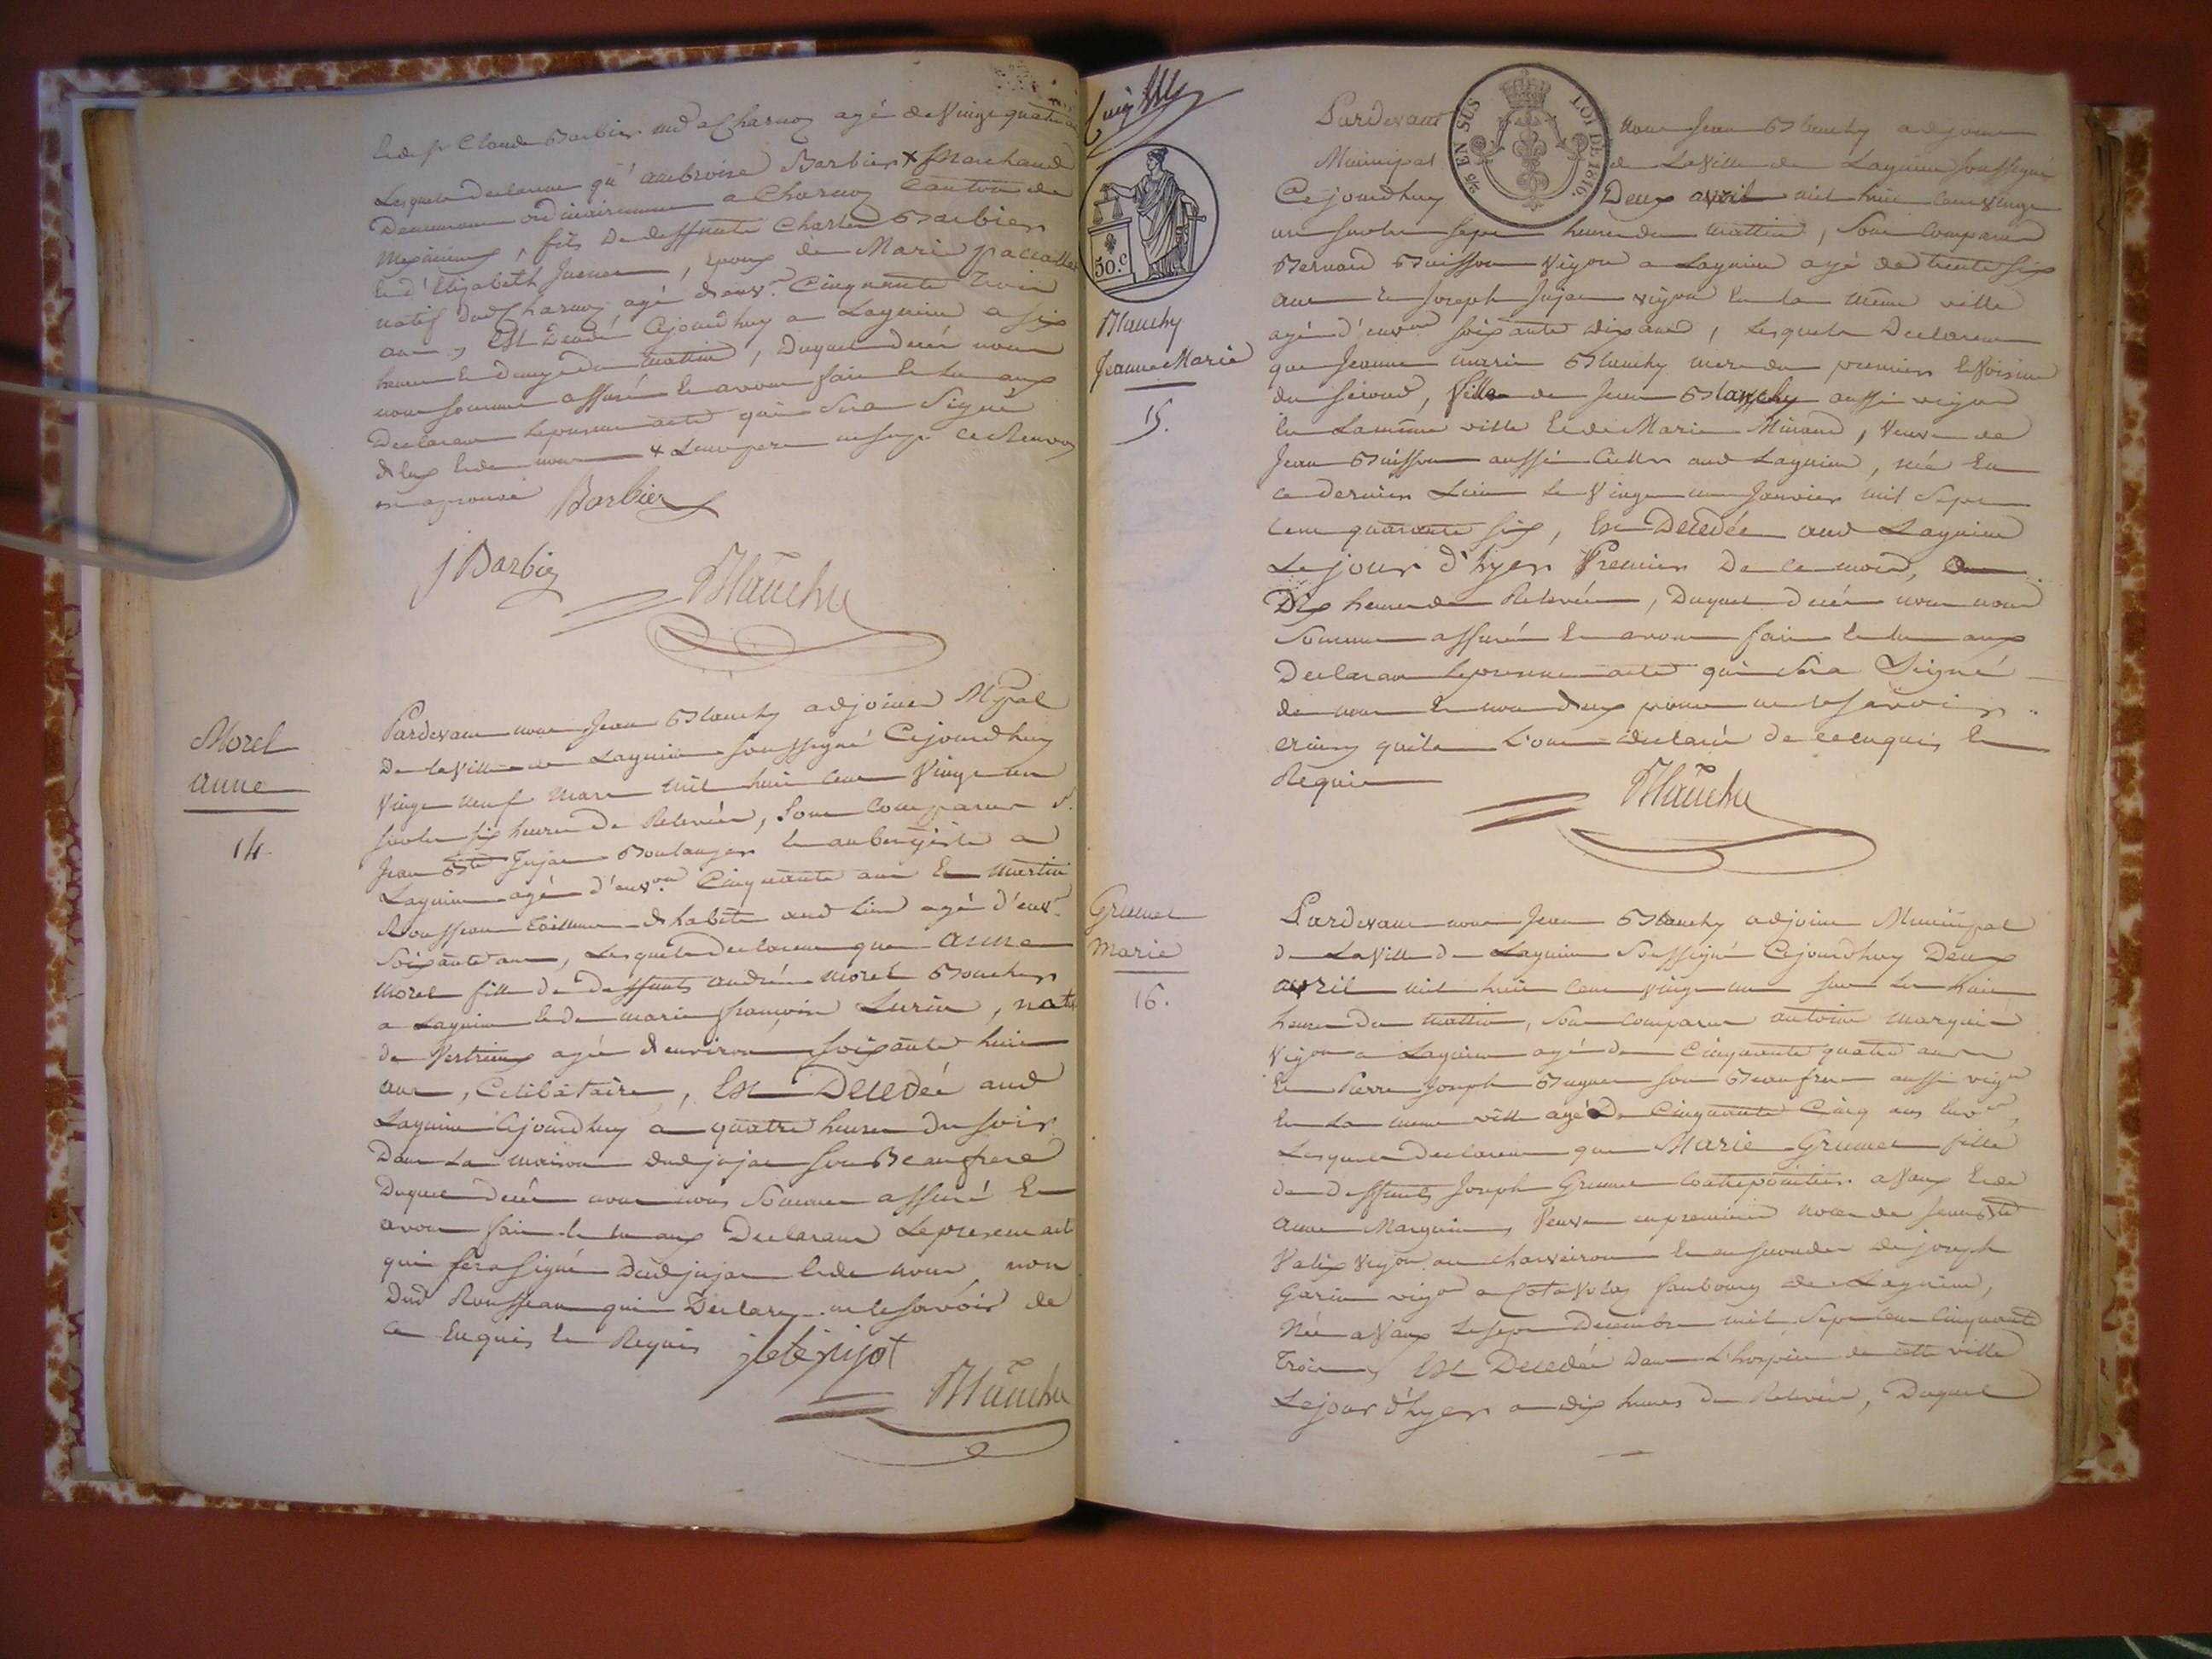 et de sr Claude Barbier md a Charnoz agé de Vingt quatre ans
Lesquels declarent qu'ambroise Barbier + Marchand
Demeurant ordinairement a Charnoz Canton de
Meximieux, fils De deffunts Charles Barbier
et d'Elizabeth, Epoux de Marie
natif dud Charnoz, agé d'envn Cinquante Trois
ans, Est Decedé Cejourdhuy a Lagnieu a six
heures du mattin, Duquel decés nous
nous sommes assuré et avons fait lecture aux
Declarans le present acte qui sera Signé
d'eux et de nous + Leur pere Ce Renvoy
approuvé Barbier
J Barbier
Blanchy
Morel
anne
14.
Pardevant nous Jean Blanchy adjoint Mpal
De la Ville de Lagnieu soussigné Cejourdhuy
Vingt neuf Mars mil huit cent Vingt un
sur les six heures De Relevée, Sont Comparus Sr
Jean Bte Jujat Boulanger et aubergiste a
Lagnieu agé d'envon Cinquante ans Et Martin
Rousseau Tailleur d'habits aud lieu agé d'envn
Soixante ans, Lesquels declarent que anne
Morel fille de Deffunts andré Morel Boucher
a Lagnieu et de marie françoise, nate
de Vertrieux agée d'environ soixante huit
ans, Celibataire, Est Decedée aud
Lagnieu Cejourdhuy a quatre heures du soir
Dans La maison dud jujat son Beaufrere
Duquel decés nous nous Sommes assuré Et
avons fait lecture aux Declarans Le present acte
qui sera signé Dud jujat et de nous non
Dud Rousseau qui Declare ne le savoir de
ce Enquis et Requis jbte jujat
Blanchy
Blanchy
Jeanne Marie
15.
50.c
EN SUS
LOI DE 1816.
Pardevant nous Jean Blanchy adjoint
Municipal de La Ville de Lagnieu soussigné
Cejourdhuy Deux avril mil huit Cent vingt
un sur les sept heures du mattin, Sont Comparus
Bernard Buisson Vigon a Lagnieu agé de trente six
ans et Joseph Jujat vigon En la même ville
agé d'envon soixante dix ans, Lesquels Declarent
que Jeanne marie Blanchy mere du premier et Voisine
du second, fille de Jean Blanchy aussi vigon
En La même ville Et de Marie Minand, Veuve de
Jean Buisson aussi Culter aud Lagnieu, née En
ce dernier Lieu Le Vingt un Janvier mil Sept
Cent quarante six, Est Decedée aud Lagnieu
Le jour d'hyer Premier De ce mois,
Dix heures de Relevée, Duquel decés nous nous
Sommes assuré Et avons fait lecture aux
Declarans Le present acte qui sera Signé
de nous Et non d'eux pour ne le savoir
ecrire qu'ils L'ont declaré de ce enquis Et
Requis
Blanchy
Grumet
Marie
16.
Pardevant nous Jean Blanchy adjoint Municipal
De La Ville De Lagnieu Soussigné Cejourdhuy Deux
avril mil huit Cent vingt un sur Les huit
heures Du mattin, Sont Comparus antoine marquis
Vigon a Lagnieu agé de Cinquante quatre ans
Et Pierre Joseph Buguet son Beaufrere aussi vign
En La même ville agé De Cinquante Cinq ans Envon,
Lesquels Declarent que Marie Grumet fille
de deffunts Joseph Grumet Cottepointier a Vaux Et de
anne Marquis, Veuve en premieres noces de Jean Bte
vigon au Et en secondes de joseph
Garin vigon a faubourg de Lagnieu,
Née a Vaux Le sept Decembre mil Sept Cent Cinquante
Trois, Est Decedée Dans L'hospice de cette ville
Le jour d'hyer a dix heures De Relevée, Duquel